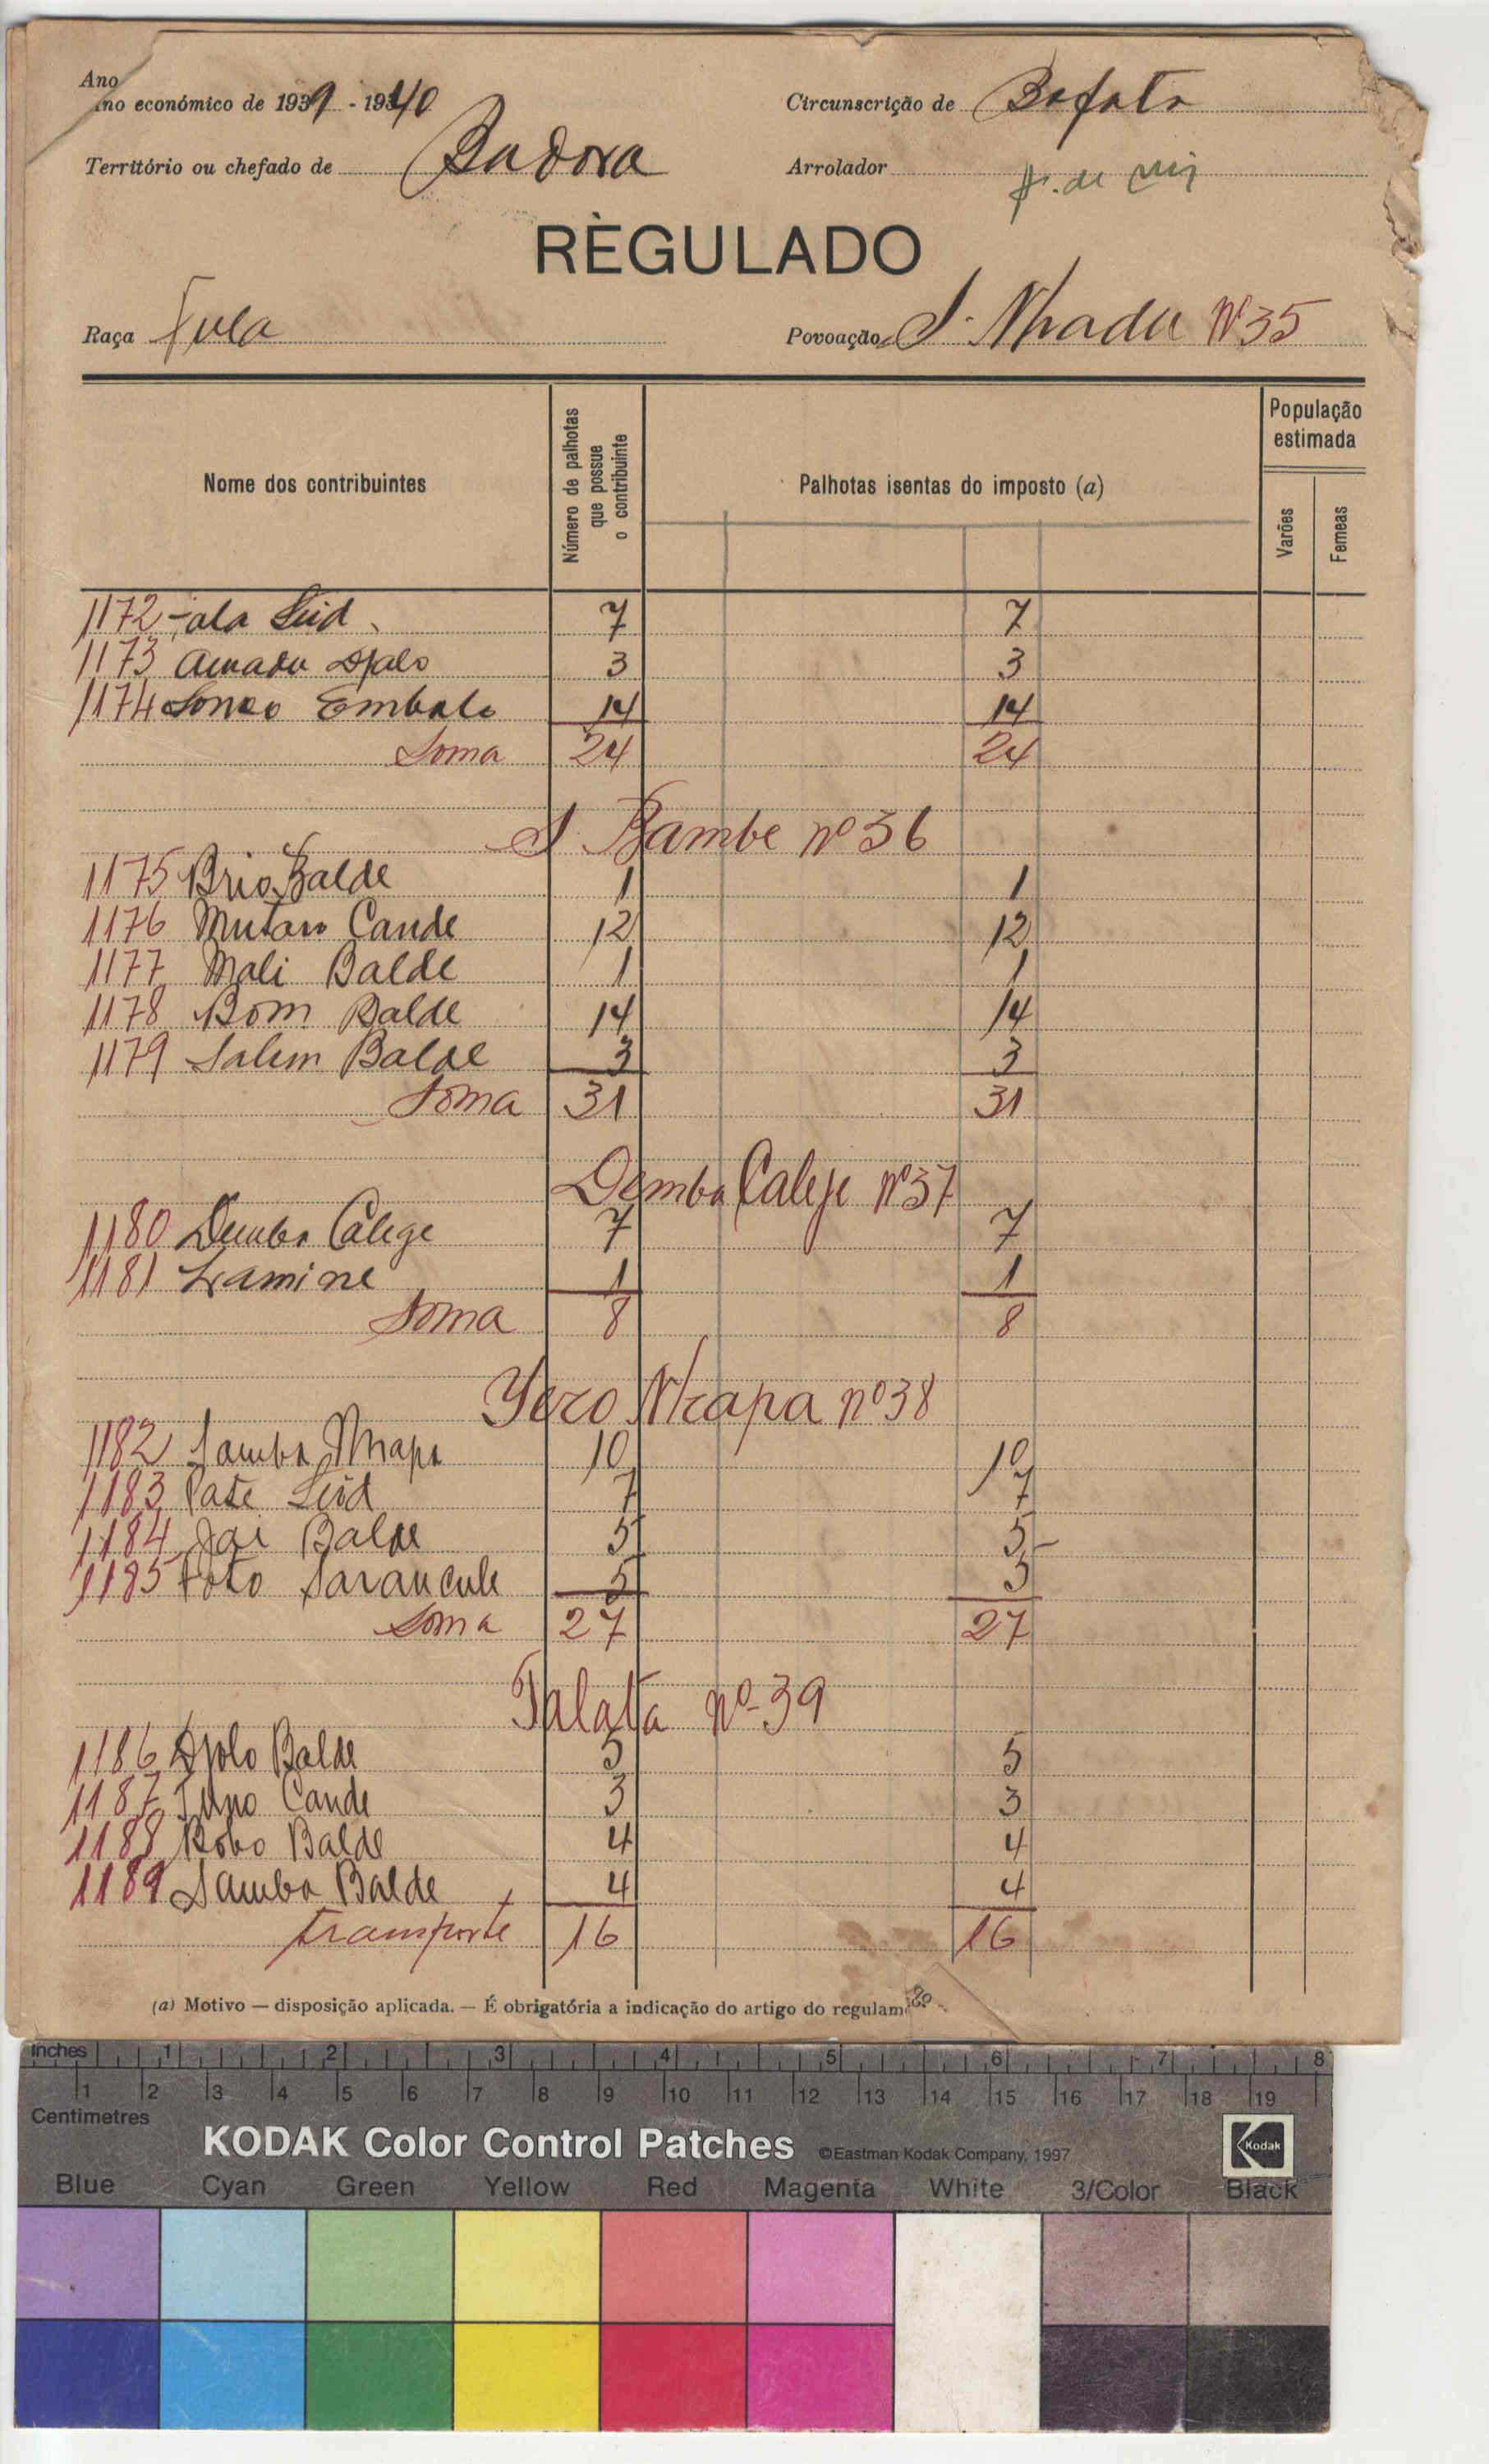 Ano
Ano económico de 1939 - 1940
Circunscrição de Bafata
Território ou chefado de Badora
Arrolador
RÈGULADO
Raça Fula
Povoação S. Nhadu Nº 35
Nome dos contribuintes
Número de palhotas que possue o contribuinte
Palhotas isentas do imposto (a)
População estimada
Varões
Femeas
1172 7 7
1173 Amadu Djalo 3 3
1174 Embalo 14 14
Soma 24 24
S Bambe nº 36
1175 Brio Balde 1 1
1176 Mutaro Cande 12 12
1177 Mali Balde 1 1
1178 Bom Balde 14 14
1179 Salim Balde 3 3
Soma 31 31
Demba Calege Nº 37
1180 Demba Calege 7 7
1181 Lamine 1 1
Soma 8 8
Yero Nhapa nº 38
1182 Samba Nhapa 10 10
1183 Pate 7 7
1184 Jai Balde 5 5
1185 Sarancule 5 5
Soma 27 27
Talata nº 39
1186 Djolo Balde 5 5
1187 Cande 3 3
1188 Bobo Balde 4 4
1189 Samba Balde 4 4
transporte 16 16
(a) Motivo — disposição aplicada. — É obrigatória a indicação do artigo do regulam
inches 1 2 3 4 5 6 7 8
1 2 3 4 5 6 7 8 9 10 11 12 13 14 15 16 17 18 19
Centimetres
KODAK Color Control Patches ©Eastman Kodak Company, 1997 Kodak
Blue Cyan Green Yellow Red Magenta White 3/Color Black